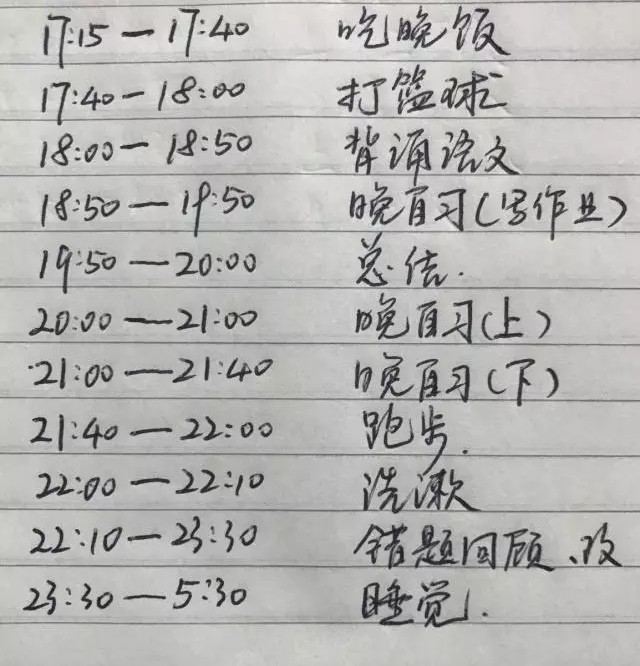 17:15—17:40 吃晚饭
17:40—18:00 打篮球
18:00—18:50 背诵语文
18:50—19:50 晚自习(写作业)
19:50—20:00 总结.
20:00—21:00 晚自习(上)
21:00—21:40 晚自习(下)
21:40—22:00 跑步.
22:00—22:10 洗漱
22:10—23:30 错题回顾、改
23:30—5:30 睡觉.